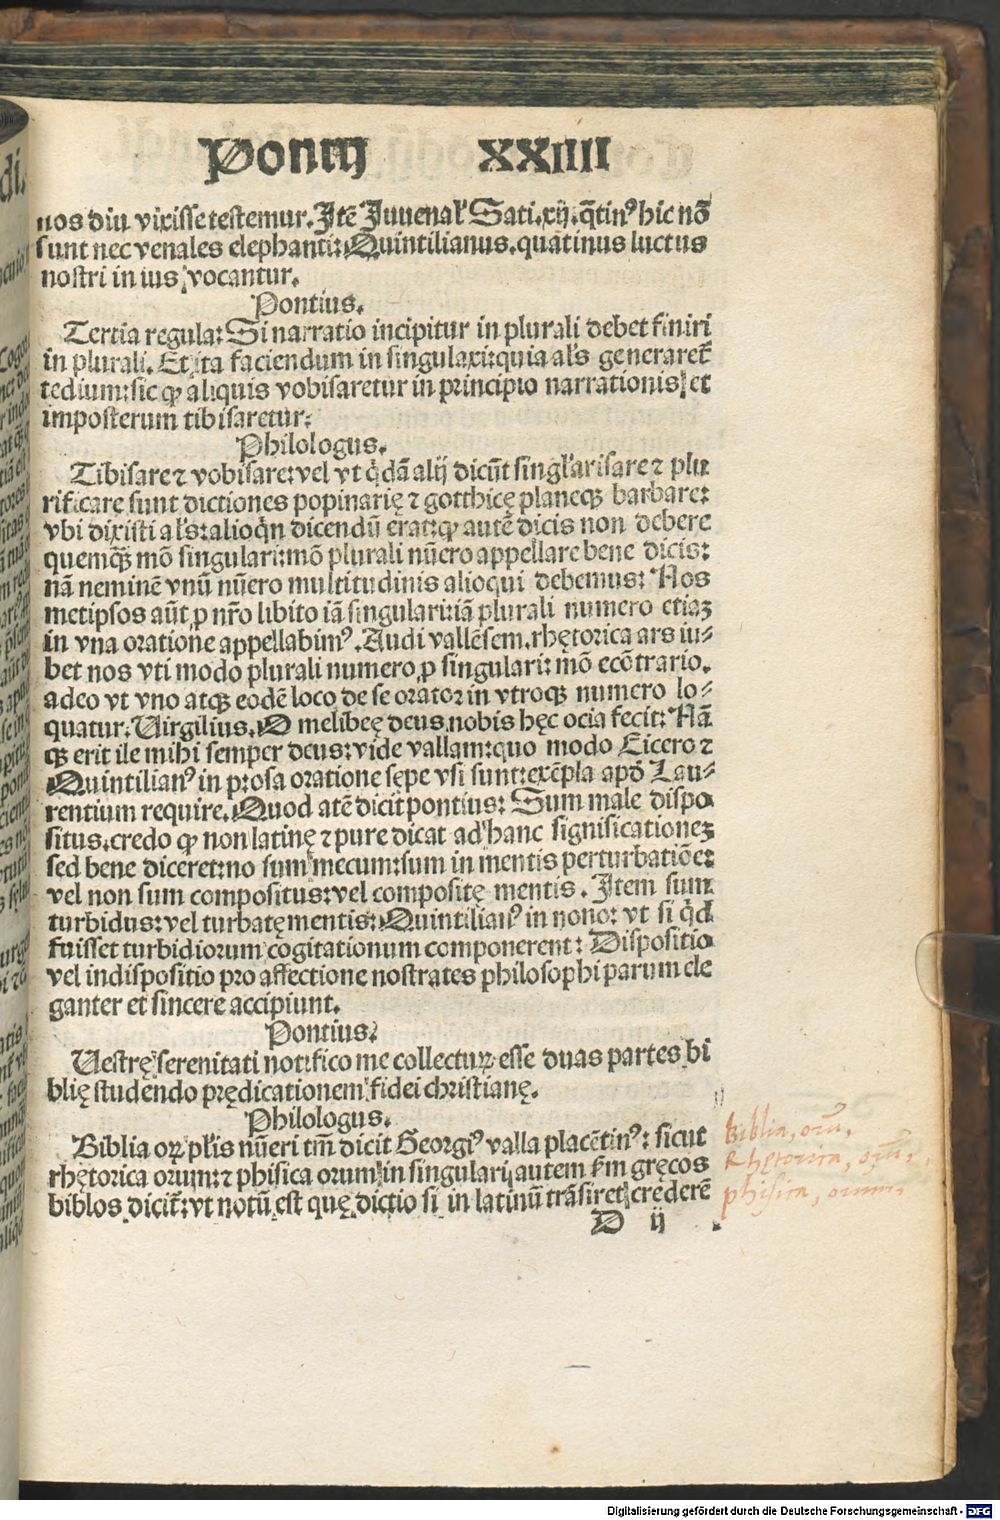 Pontij XXIIII
nos diu vixisse testemur. Itē Iuuenal' Sati. xij. q̄tinꝰ hic nō
sunt nec venales elephanti: Quintilianus. quatinus luctus
nostri in ius vocantur.
Pontius.
Tertia regula: Si narratio incipitur in plurali debet finiri
in plurali. Et ita faciendum in singulari: quia al's generaret̄
tedium: sic ꝙ aliquis vobisaretur in principio narrationis: et
imposterum tibisaretur:
Philologus.
Tibisare ⁊ vobisare: vel vt q̇dā alij dicūt singl'arisare ⁊ plu
rificare sunt dictiones popinarię ⁊ gotthicę planeqꝫ barbare:
vbi dixisti al's: alioq̇n dicendū erat: ꝙ autē dicis non debere
quemqꝫ mō singulari: mō plurali nūero appellare bene dicis:
nā neminē vnū nūero multitudinis alioqui debemus: Nos
metipsos aūt ꝓ nr̄o libito iā singulari: iā plurali numero etiaꝫ
in vna oratione appellabimꝰ. Audi vallēsem. rhętorica ars iu-
bet nos vti modo plurali numero ꝓ singulari: mō econ̄trario.
adeo vt vno atqꝫ eodē loco de se orator in vtroqꝫ numero lo-
quatur: Uirgilius. O melibeę deus nobis hęc ocia fecit: Nā
qꝫ erit ile mihi semper deus: vide vallam: quo modo Cicero ⁊
Quintilianꝰ in prosa oratione sępe vsi sunt: exēpla apd̄ Lau-
rentium require. Quod atē dicit pontius: Sum male dispo
situs. credo ꝙ non latinę ⁊ pure dicat ad hanc significationeꝫ
sed bene diceret: no sum mecum: sum in mentis perturbatiōe:
vel non sum compositus: vel compositę mentis. Item sum
turbidus: vel turbatę mentis: Quintilianꝰ in nono: vt si q̇d
fuisset turbidiorum cogitationum componerent: Dispositio
vel indispositio pro affectione nostrates philosophi parum ele
ganter et sincere accipiunt.
Pontius:
Uestrę serenitati notifico me collecturꝫ esse duas partes bi
blię studendo prędicationem fidei christianę.
Philologus.
Biblia oꝝ pl'is nūeri tm̄ dicit Georgiꝰ valla placētinꝰ: sicut
rhętorica orum: ⁊ phisica orum in singulari autem fm gręcos
biblos dicit̄: vt notū est quę dictio si in latinū trāsiret crederē
D ij
Biblia, orū.
Rhętorica, orū.
phisica, orum.
Digitalisierung gefördert durch die Deutsche Forschungsgemeinschaft - DFG